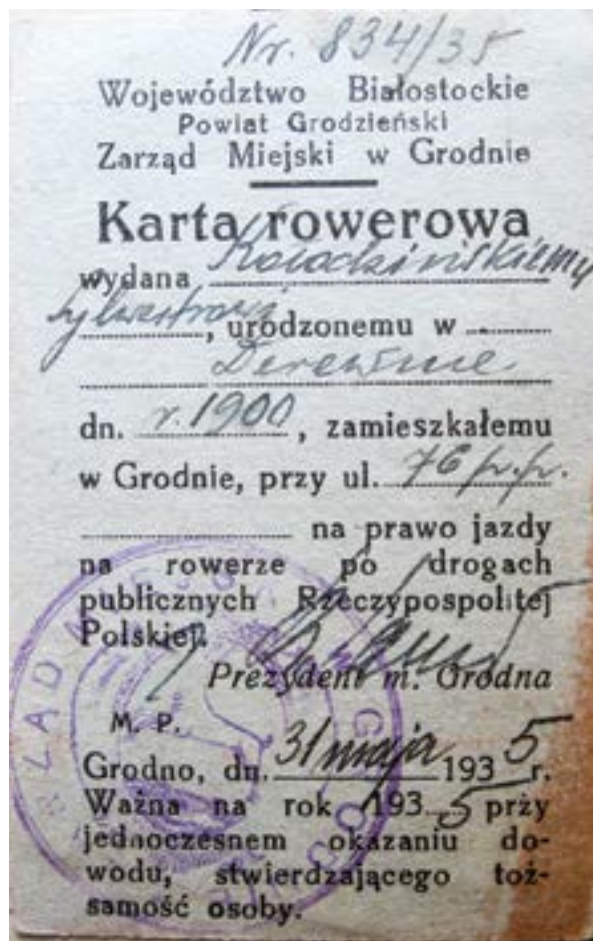 Nr. 834/35
Województwo Białostockie
Powiat Grodzieński
Zarząd Miejski w Grodnie
Karta rowerowa
wydana Kołodzińskiemu
Sylwestrowi, urodzonemu w
dn. r. 1900, zamieszkałemu
w Grodnie, przy ul. 76 p.p.
na prawo jazdy
na rowerze po drogach
publicznych Rzeczypospolitej
Polskiej.
Prezydent m. Grodna
M. P.
Grodno, dn. 31 maja 1935 r.
Ważna na rok 1935 przy
jednoczesnem okazaniu do-
wodu, stwierdzającego toż-
samość osoby.